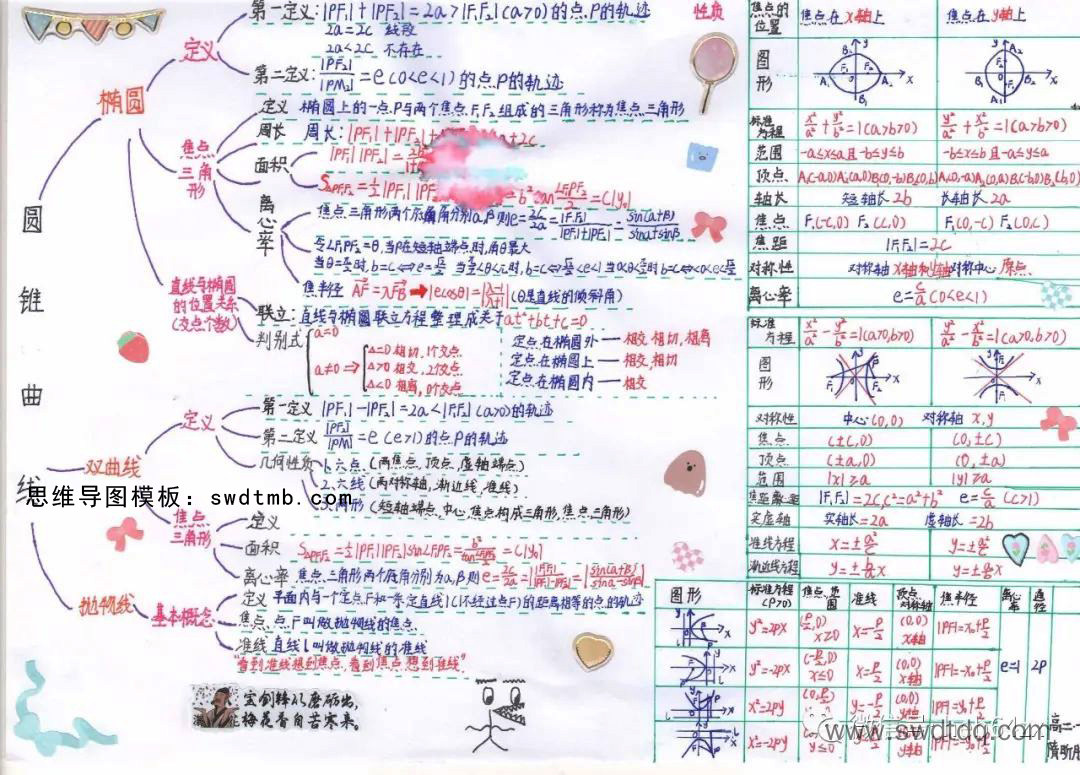 圆锥曲线
椭圆
定义
第一定义:|PF₁|+|PF₂|=2a>|F₁F₂|(a>0)的点P的轨迹
2a=2c 线段
2a<2c 不存在
第二定义:|PF₂|/|PM₂|=e(0<e<1)的点P的轨迹
焦点三角形
定义 椭圆上的一点P与两个焦点F₁F₂组成的三角形称为焦点三角形
周长 周长:|PF₁|+|PF₂|+ +2c
面积
|PF₁||PF₂|=
S△PF₁F₂=½|PF₁||PF =b²tan∠F₁PF₂/2=c|y₀|
离心率
焦点三角形两个底角分别α,β则e=2c/2a=|F₁F₂|/(|PF₁|+|PF₂|)=sin(α+β)/(sinα+sinβ)
令∠F₁PF₂=θ,当P在短轴端点时,角θ最大
焦半径 AF=λFB ➡ |ecosθ|=|(λ-1)/(λ+1)| (θ是直线的倾斜角)
直线与椭圆的位置关系(交点个数)
联立:直线与椭圆联立方程整理成关于at²+bt+c=0
判别式
a=0
a≠0⇒
Δ=0 相切,1个交点
Δ>0 相交,2个交点
Δ<0 相离,0个交点
定点在椭圆外——相交,相切,相离
定点在椭圆上——相交,相切
定点在椭圆内——相交
双曲线
定义
第一定义 |PF₁|-|PF₂|=2a<|F₁F₂|(a>0)的轨迹
第二定义 |PF₂|/|PM|=e(e>1)的点P的轨迹
几何性质
1.六点(两焦点,顶点,虚轴端点)
2.六线(两对称轴,渐近线,准线)
3.两形(短轴端点、中心、焦点构成三角形,焦点三角形)
焦点三角形
定义
面积 S△PF₁F₂=½|PF₁||PF₂|sin∠F₁PF₂=b²/tan(∠F₁PF₂/2)=c|y₀|
离心率 焦点三角形两个底角分别为α,β则e=2c/2a=|F₁F₂|/|PF₁-PF₂|=|sin(α+β)/(sinα-sinβ)|
抛物线
基本概念
定义 平面内与一个定点F和一条定直线l(l不经过点F)的距离相等的点的轨迹
焦点 点F叫做抛物线的焦点
准线 直线l叫做抛物线的准线
"看到准线想到焦点,看到焦点想到准线"
宝剑锋从磨砺出,
梅花香自苦寒来。
思维导图模板:swdtmb.com
性质
焦点的位置 焦点在x轴上 焦点在y轴上
图形
标准方程 x²/a²+y²/b²=1(a>b>0) y²/a²+x²/b²=1(a>b>0)
范围 -a≤x≤a且-b≤y≤b -b≤x≤b且-a≤y≤a
顶点 A₁(-a,0)A₂(a,0)B₁(0,-b)B₂(0,b) A₁(0,-a)A₂(0,a)B₁(-b,0)B₂(b,0)
轴长 短轴长2b 长轴长2a
焦点 F₁(-c,0) F₂(c,0) F₁(0,-c) F₂(0,c)
焦距 |F₁F₂|=2c
对称性 对称轴x轴和y轴对称中心原点
离心率 e=c/a(0<e<1)
标准方程 x²/a²-y²/b²=1(a>0,b>0) y²/a²-x²/b²=1(a>0,b>0)
图形
对称性 中心(0,0) 对称轴x,y
焦点 (±c,0) (0,±c)
顶点 (±a,0) (0,±a)
范围 |x|≥a |y|≥a
|F₁F₂|=2c,c²=a²+b² e=c/a (c>1)
实虚轴 实轴长=2a 虚轴长=2b
准线方程 x=±a²/c y=±a²/c
渐近线方程 y=±b/a x y=±a/b x
图形 标准方程(P>0) 焦点,范围 准线 顶点对称轴 焦半径 离心率 通径
y²=2px (p/2,0) x≥0 x=-p/2 (0,0) x轴 |PF|=x₀+p/2
y²=-2px (-p/2,0) x≤0 x=p/2 (0,0) x轴 |PF|=-x₀+p/2 e=1 2P
x²=2py y=-p/2 (0,0) y轴 |PF|=y₀+p/2
x²=-2py y≤0 y轴 |PF|=-y₀+p/2
www.swdtdq.com